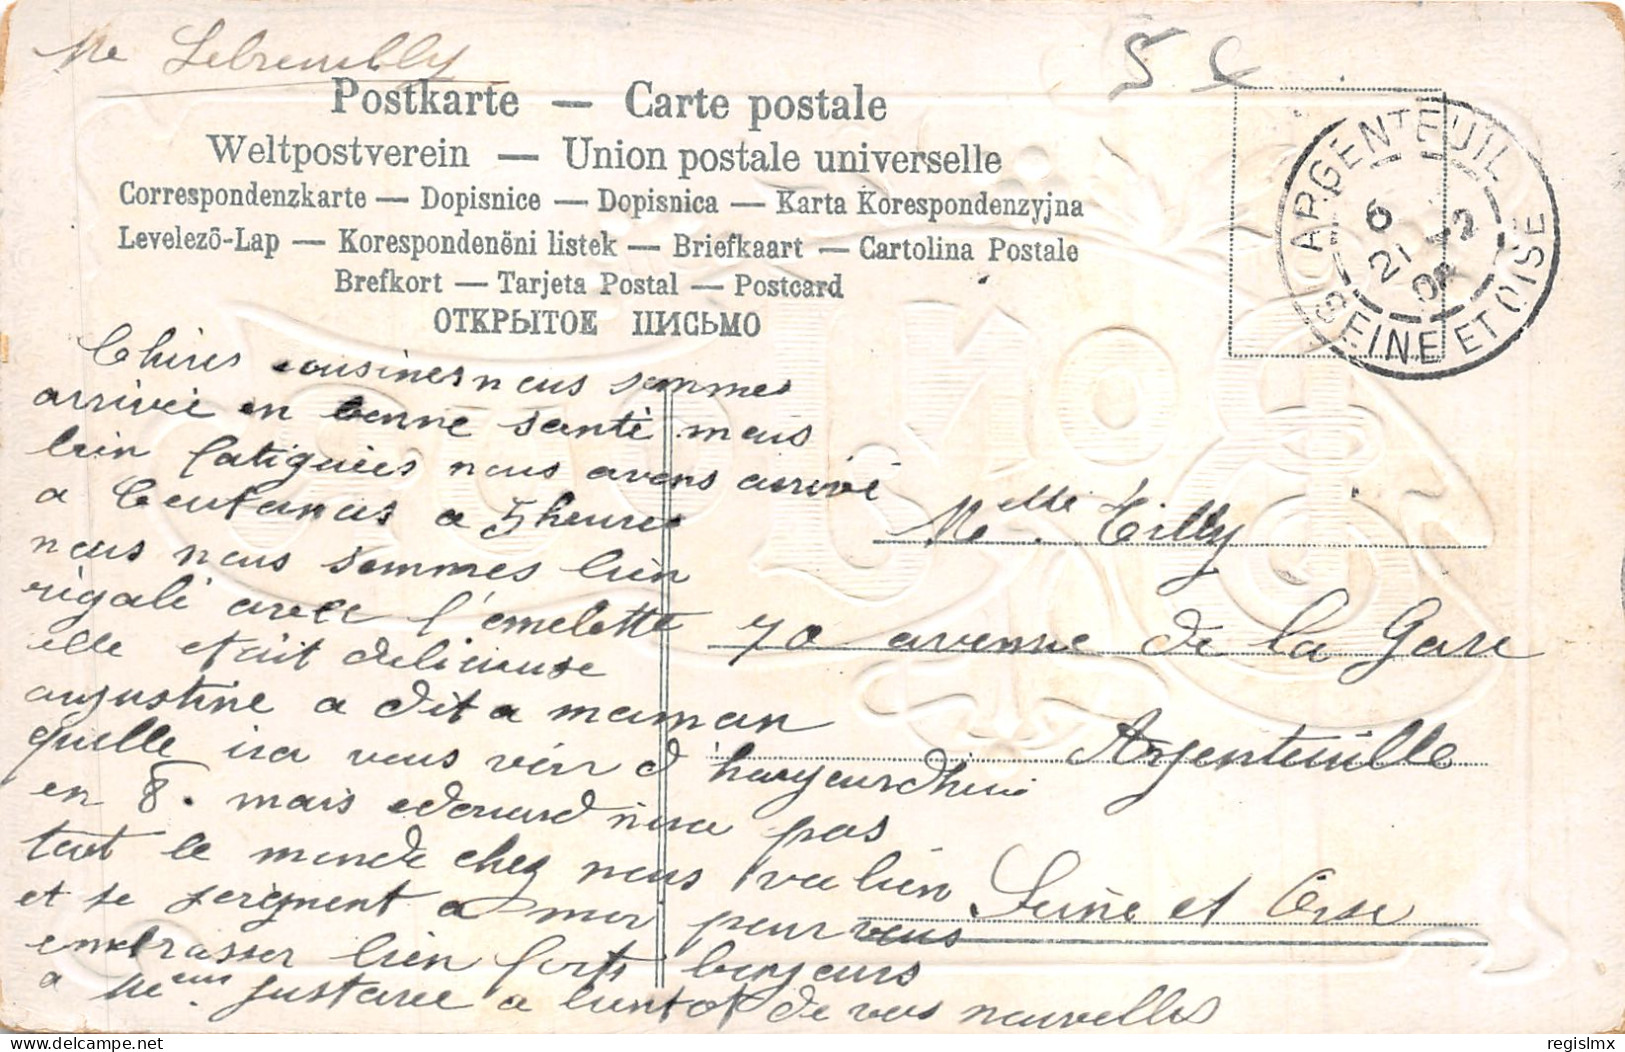 Me Lebrembly
5 c
Postkarte — Carte postale
Weltpostverein — Union postale universelle
Correspondenzkarte — Dopisnice — Dopisnica — Karta Korespondenzyjna
Levelezõ-Lap — Korespondenčni listek — Briefkaart — Cartolina Postale
Brefkort — Tarjeta Postal — Postcard
ОТКРЫТОЕ ПИСЬМО
ARGENTEUIL
6
21 - 2
SEINE ET OISE
Chires cousines nous sommes
arrivée en bonne santé mais
bien fatiguées nous avons arrivé
a Coutances a 5 heures
nous nous sommes bien
régalé avec l'omelette
elle etait delicieuse
augustine a dit a maman
quelle ira vous voir d'haujourdhui
en 8. mais edouard nira pas
tout le monde chez nous va bien
et se joignent a moi pour vous
embrasser bien forts bonjours
a Me Gustave a bientot de vos nouvelles
Melle Tilly
70 avenue de la Gare
Argenteuille
Seine et Oise
regislmx
delcampe.net